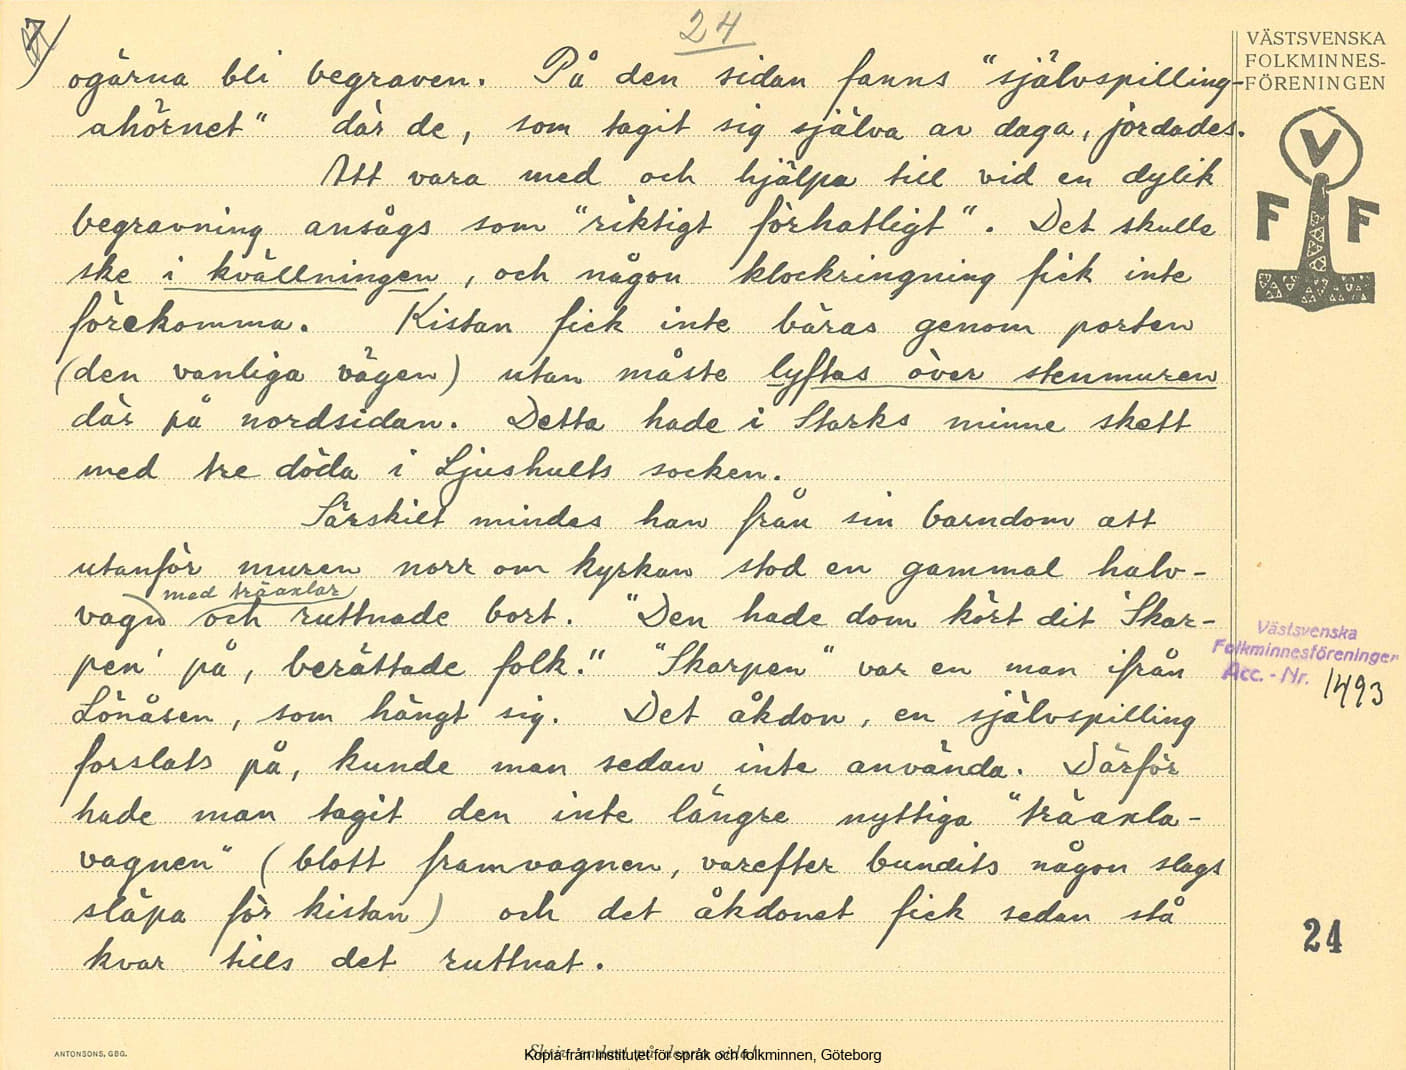 24
7)
ogärna bli begraven. På den sidan fanns "självspilling-
ahörnet" där de, som tagit sig själva av daga, jordades.
Att vara med och hjälpa till vid en dylik
begravning ansågs som "riktigt förhatligt". Det skulle
ske i kvällningen, och någon klockringning fick inte
förekomma. Kistan fick inte bäras genom porten
(den vanliga vägen) utan måste lyftas över stenmuren
där på nordsidan. Detta hade i Starks minne skett
med tre döda i Ljushults socken.
Särskilt mindes han från sin barndom att
utanför muren norr om kyrkan stod en gammal halv-
med träaxlar
vagn och ruttnade bort. "Den hade dom kört dit 'Skar-
pen' på, berättade folk." "Skarpen" var en man ifrån
Lönåsen, som hängt sig. Det åkdon, en självspilling
forslats på, kunde man sedan inte använda. Därför
hade man tagit den inte längre nyttiga "träaxla-
vagnen" (blott framvagnen, varefter bundits någon slags
släpa för kistan) och det åkdonet fick sedan stå
kvar tills det ruttnat.
VÄSTSVENSKA
FOLKMINNES-
FÖRENINGEN
V
F F
Västsvenska
Folkminnesföreningen
Acc. - Nr. 1493
24
ANTONSONS, GBG.
Kopia från Institutet för språk och folkminnen, Göteborg